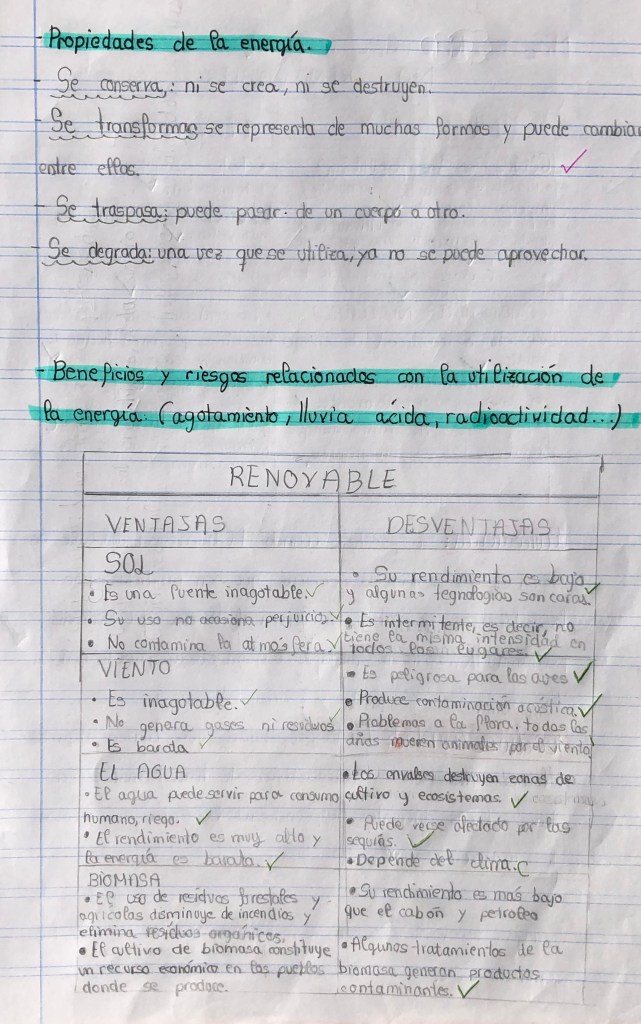 - Propiedades de la energía.
- Se conserva: ni se crea, ni se destruyen.
- Se transforma: se representa de muchas formas y puede cambiar
entre ellas.
- Se traspasa: puede pasar de un cuerpo a otro.
- Se degrada: una vez que se utiliza, ya no se puede aprovechar.
- Beneficios y riesgos relacionados con la utilización de
la energía: (agotamiento, lluvia ácida, radioactividad...)
RENOVABLE
VENTAJAS
SOL
• Es una fuente inagotable.
• Su uso no ocasiona perjuicios.
• No contamina la atmósfera.
VIENTO
• Es inagotable.
• No genera gases ni residuos
• Es barata
EL AGUA
• El agua puede servir para consumo
humano, riego.
• El rendimiento es muy alto y
la energía es barata.
BIOMASA
• El uso de residuos forestales y
agrícolas disminuye de incendios y
elimina residuos orgánicos.
• El cultivo de biomasa constituye
un recurso económico en los pueblos
donde se produce.
DESVENTAJAS
• Su rendimiento es bajo
y algunas tegnologías son caras.
• Es intermitente, es decir, no
tiene la misma intensidad en
todos los lugares.
• Es peligrosa para las aves
• Produce contaminación acústica.
• Problemas a la flora, todos los
años mueren animales por el viento
• Los envalses destruyen zonas de
cultivo y ecosistemas.
• Puede verse afectado por las
sequías.
• Depende del clima.
• Su rendimiento es más bajo
que el cabón y petroleo
• Algunos tratamientos de la
biomasa generan productos
contaminantes.